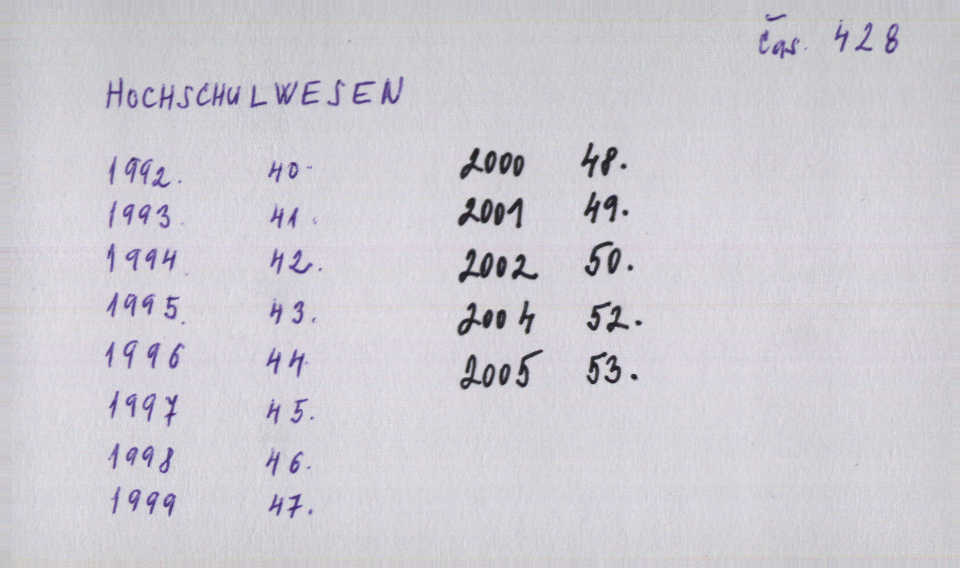 čas. 428
HOCHSCHULWESEN
1992. 40.
1993. 41.
1994. 42.
1995. 43.
1996 44.
1997 45.
1998 46.
1999 47.
2000 48.
2001 49.
2002 50.
2004 52.
2005 53.